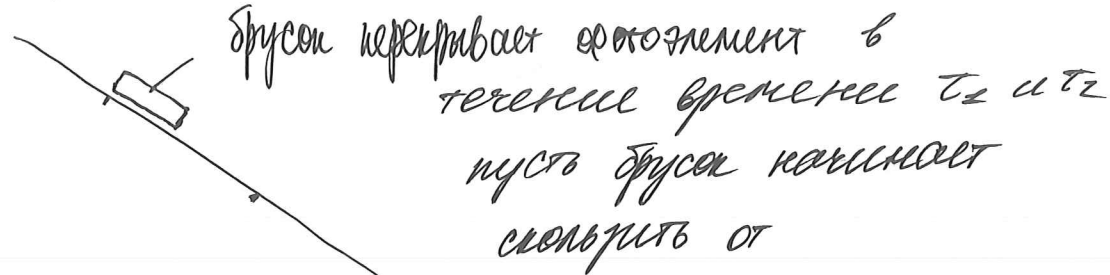 брусок перекрывает фотоэлемент в
течение времени τ₁ и τ₂
пусть брусок начинает
скользить от